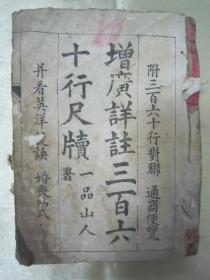 附三百六十行對聯 通商便覽
增廣詳註三百六
十行尺牘
一品山人
署
并看英洋 訣 婚喪